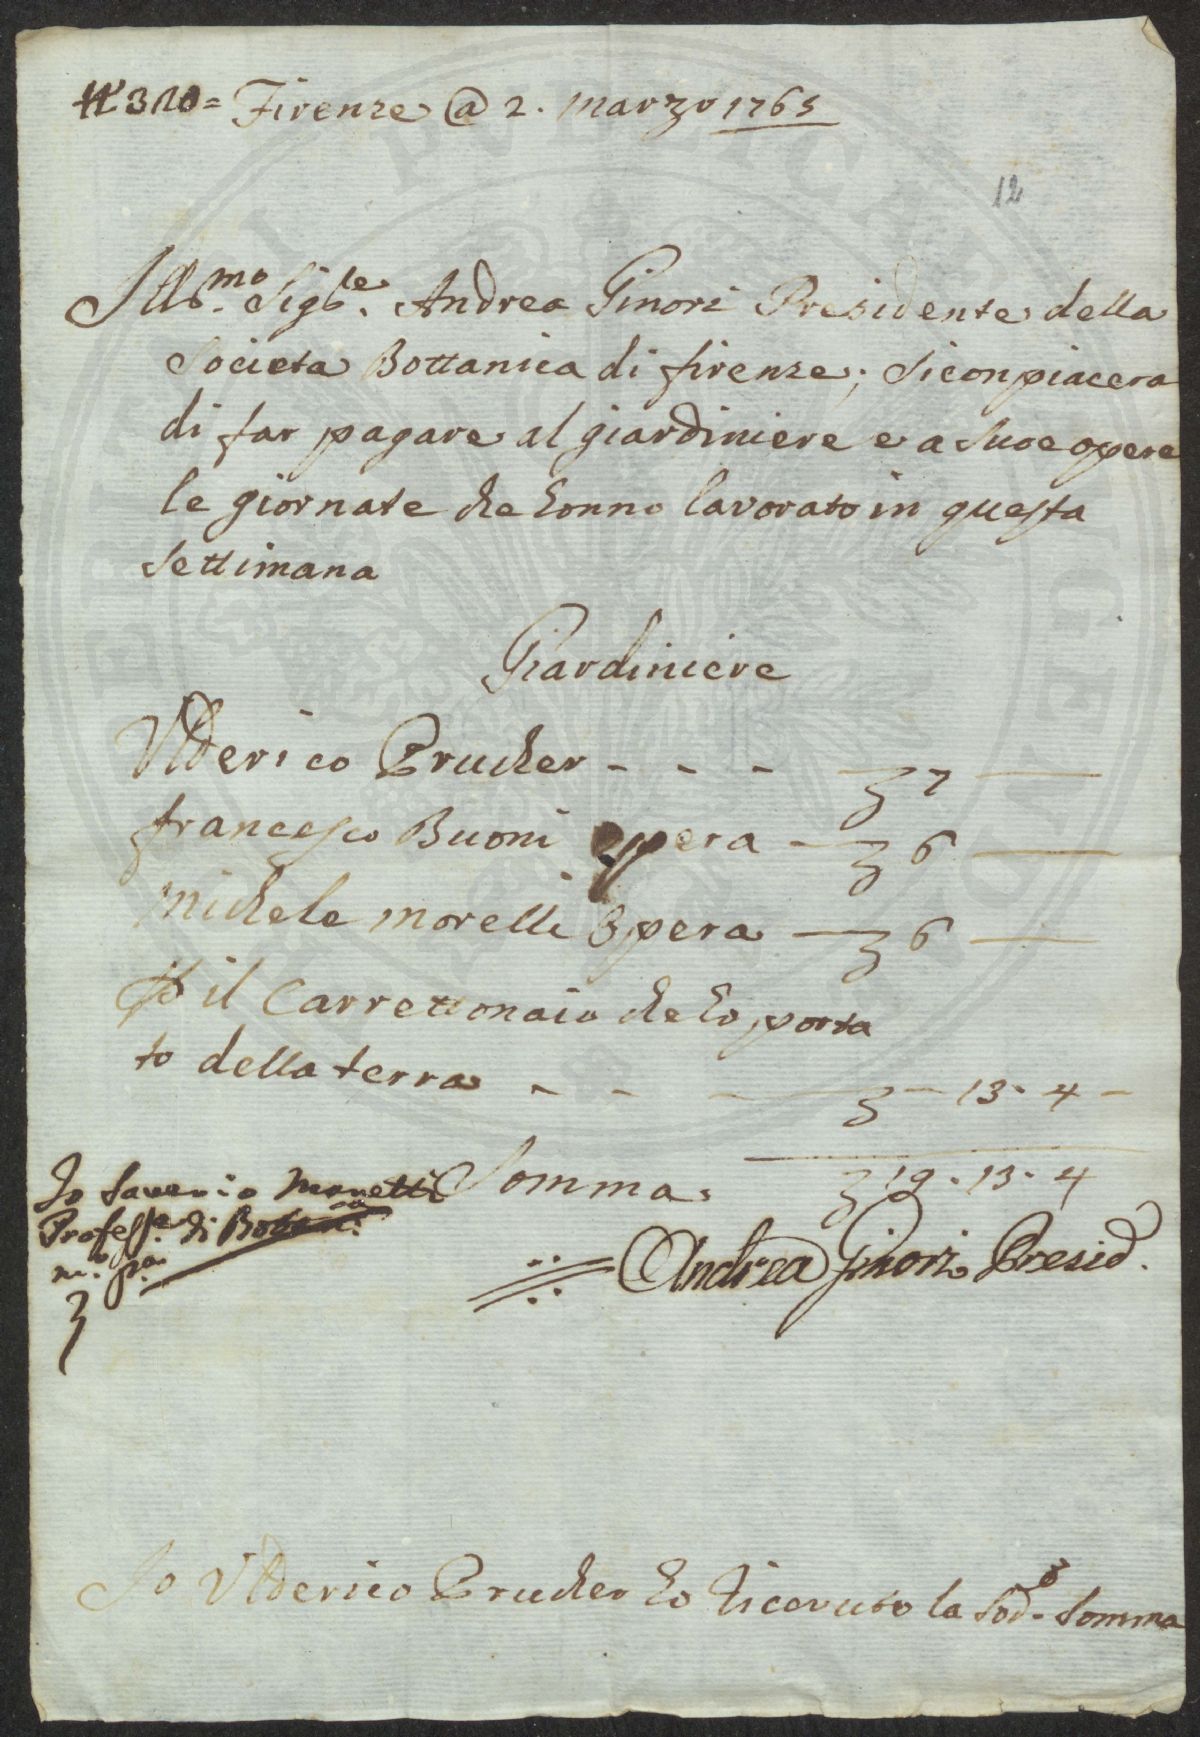 N.° 310= Firenze @ 2. Marzo 1765
12
Ill.mo Sig.re Andrea Ginori Presidente della
Societa Bottanica di firenze; si conpiacera
di far pagare al giardiniere e a Sue opere
le giornate che honno lavorato in questa
Settimana
Giardiniere
Ulderico Prucher - - - £ 7 —
francesco Buoni opera - £ 6 —
Michele Morelli Opera — £ 6 —
il Carrettonaio che ho porta
to della terra - - - £ - 13 - 4 -
Somma £ 19 - 13 - 4
Io Saverio Manetti
Profess.e di Botan.ca
m.o p.a
Andrea Ginori Presid.
Io Ulderico Prucher ho ricevuto la Sod.a Somma